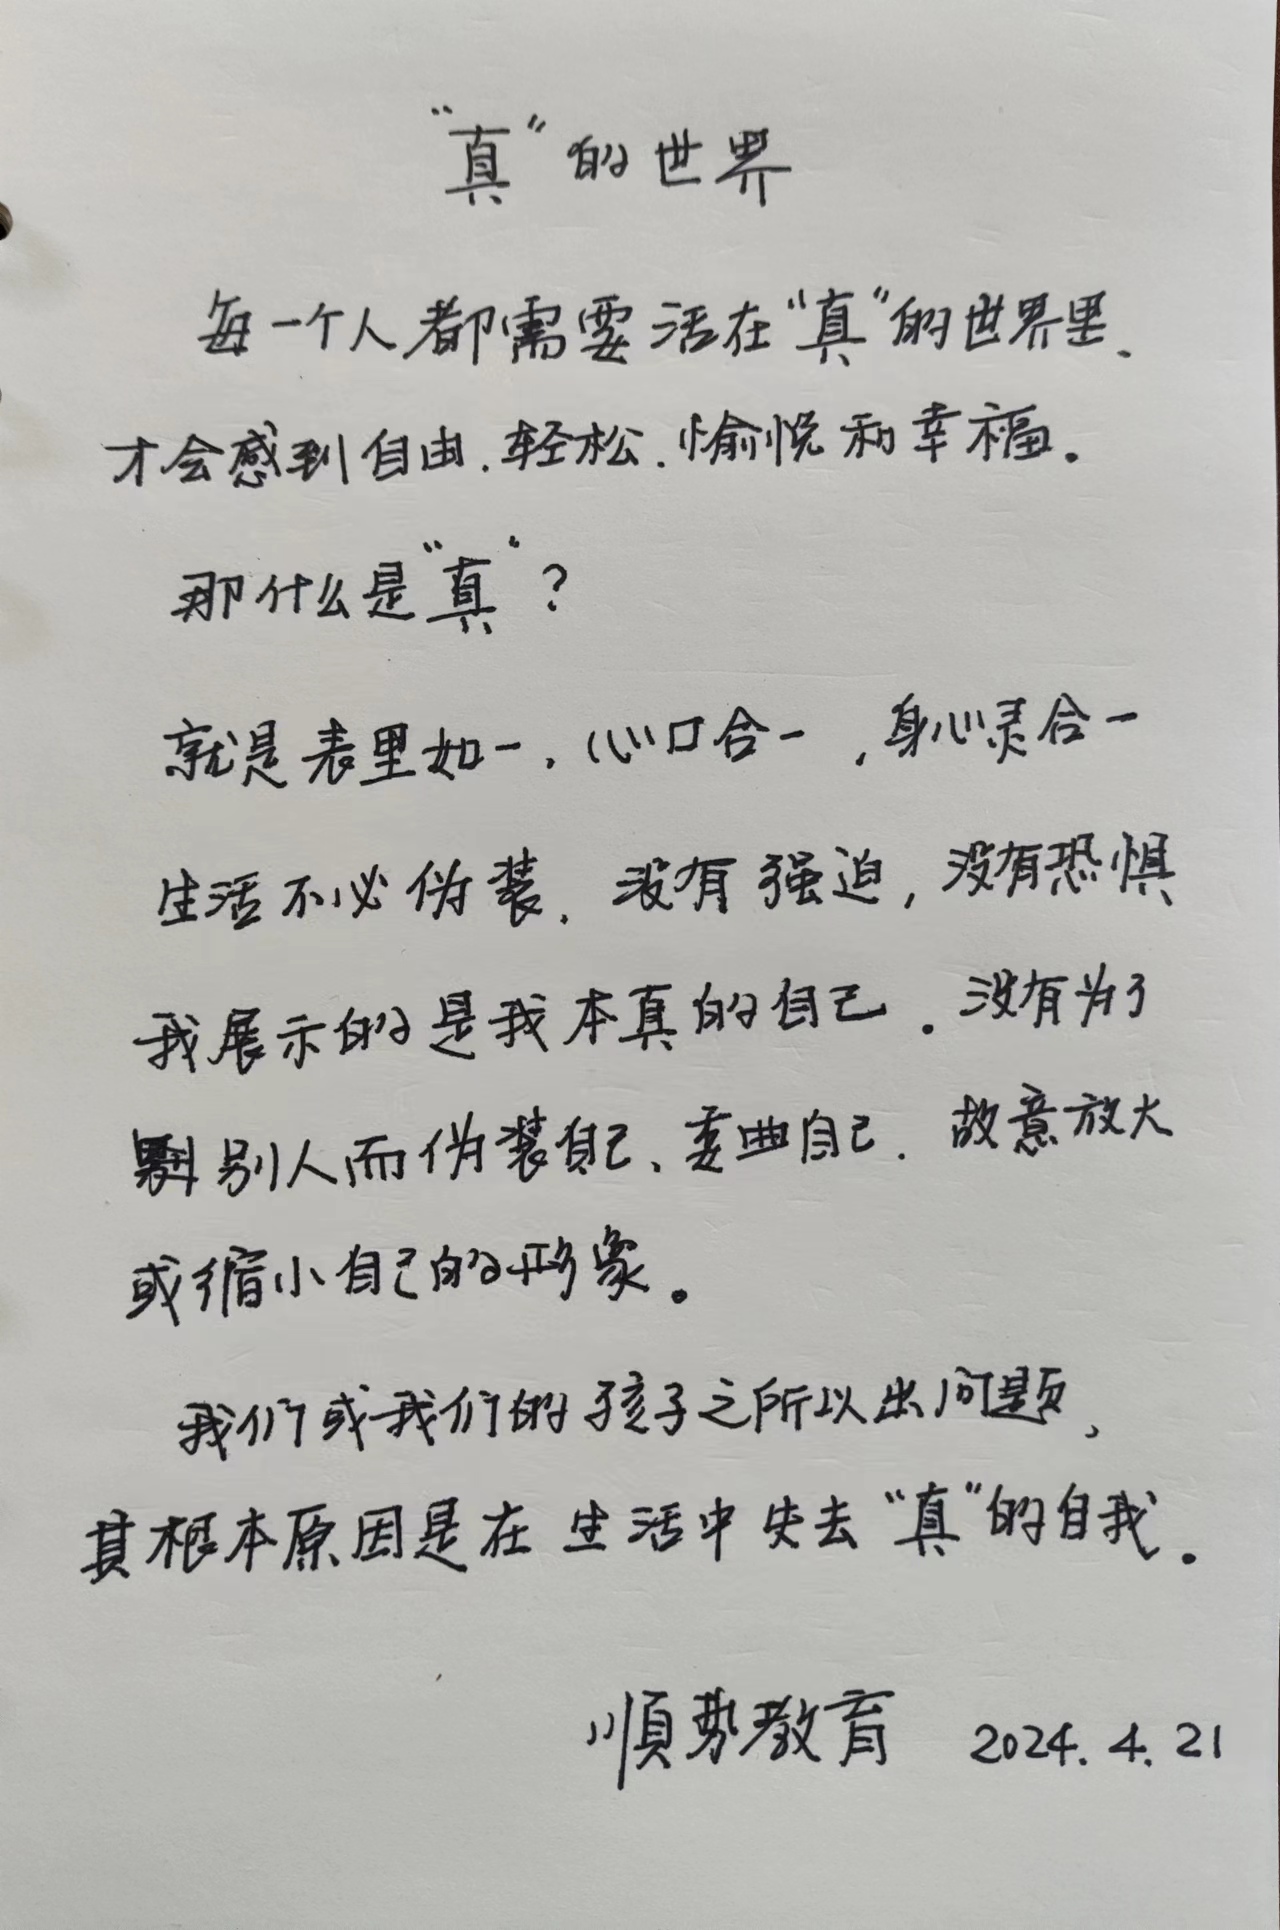 “真”的世界
每一个人都需要活在“真”的世界里、
才会感到自由、轻松、愉悦和幸福。
那什么是“真”？
就是表里如一，心口合一，身心灵合一
生活不必伪装，没有强迫，没有恐惧
我展示的是我本真的自己。没有为了
别人而伪装自己、委曲自己、故意放大
或缩小自己的形象。
我们或我们的孩子之所以出问题，
其根本原因是在生活中失去“真”的自我。
顺势教育 2024.4.21